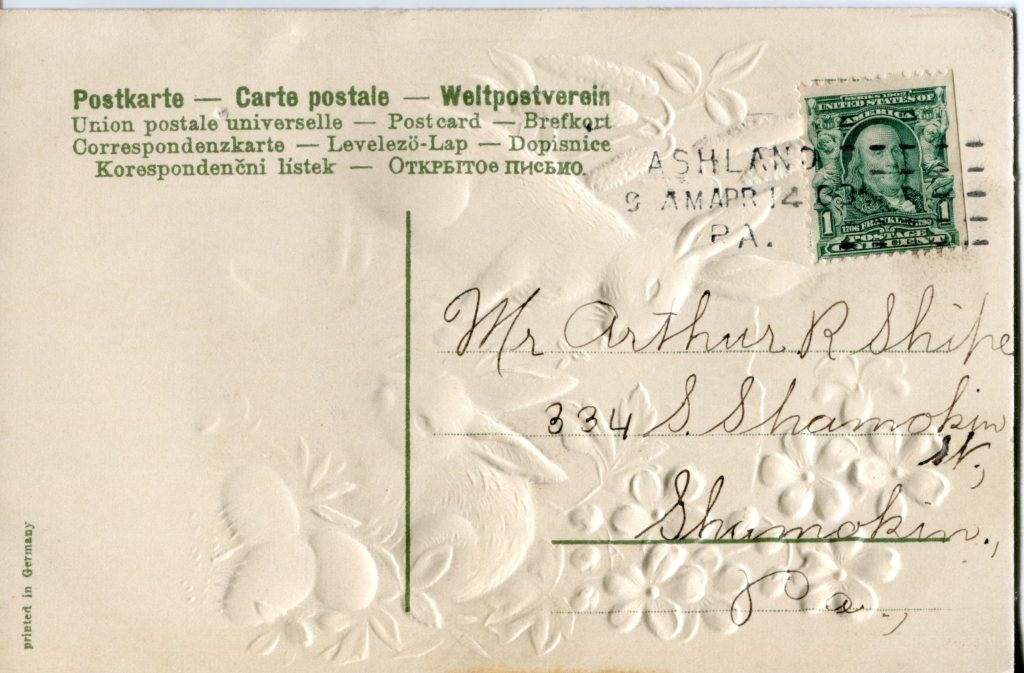 Postkarte — Carte postale — Weltpostverein
Union postale universelle — Postcard — Brefkort
Correspondenzkarte — Levelező-Lap — Dopisnice
Korespondenčni lístek — Открытое письмо.
ASHLAND
9 AM APR 14
PA.
SERIES 1902
UNITED STATES OF
AMERICA
1 1706 FRANKLIN 1790 1
POSTAGE
ONE CENT
Mr Arthur R Shipe
334 S. Shamokin
st,
Shamokin.,
Pa.,
printed in Germany